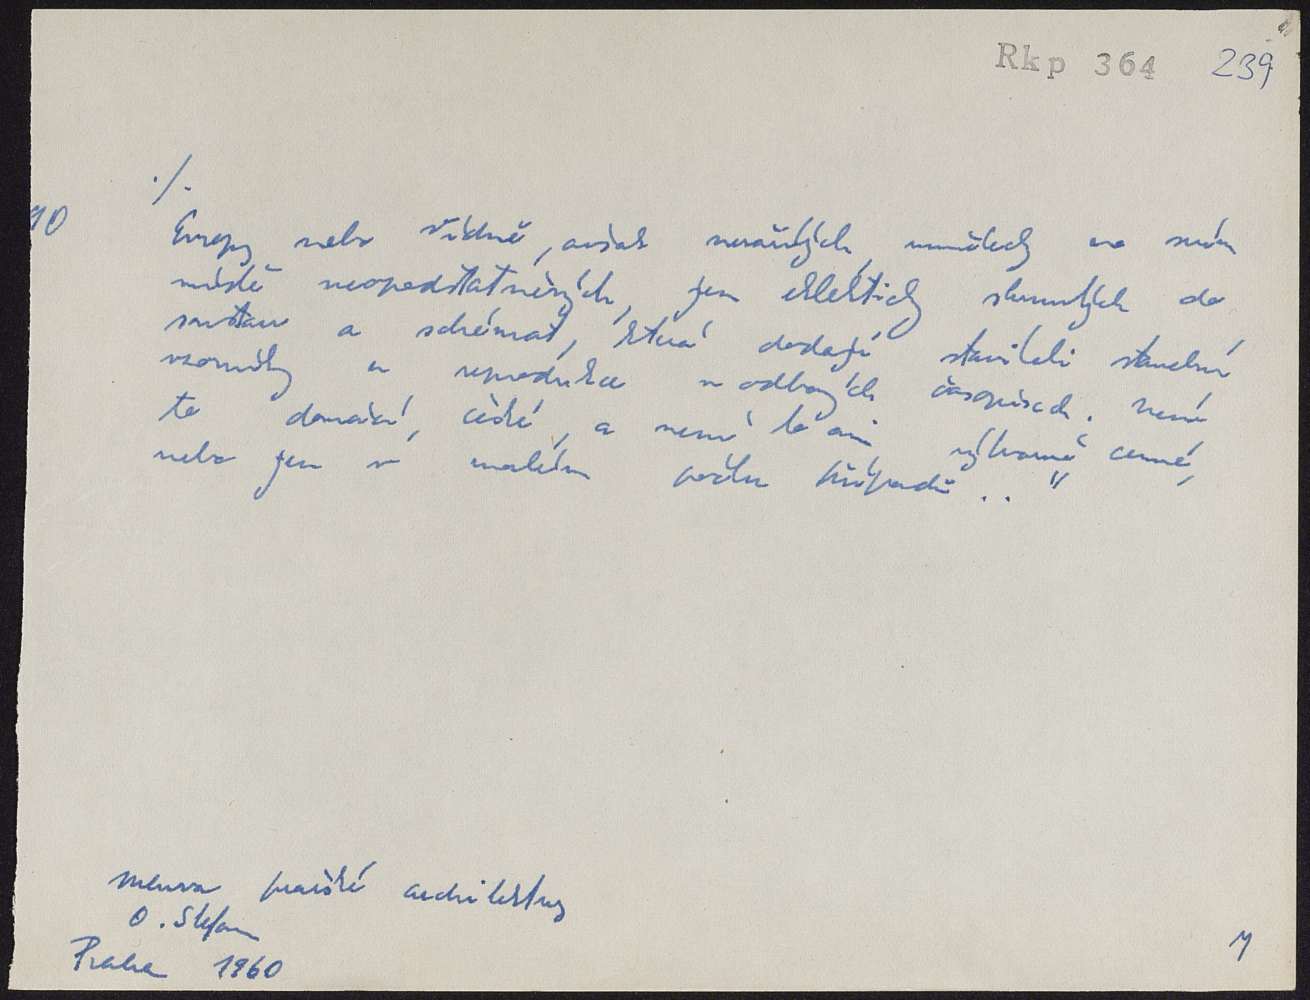 Rkp 364 239
./.
90
Evropy nebo Vídně, avšak nezažitých, umělecky na svém
místě neopodstatněných, jen eklekticky sloučených do
soustav a schémat, která dodají staviteli stavební
vzorníky a reprodukce v odborných časopisech. Není
to domácí, české, a není to ani výtvarně cenné,
nebo jen v malém počtu případů.."
pražské architektury
O. Stefan
Praha 1960